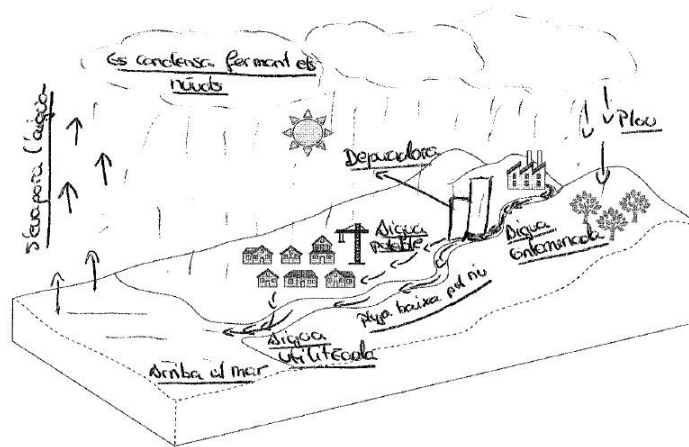 Es condensa formant els
núvols
S'evapora l'aigua
Plou
Depuradora
Aigua
potable
Aigua
contaminada
pluja baixa pel riu
Aigua
utilitzada
Arriba al mar